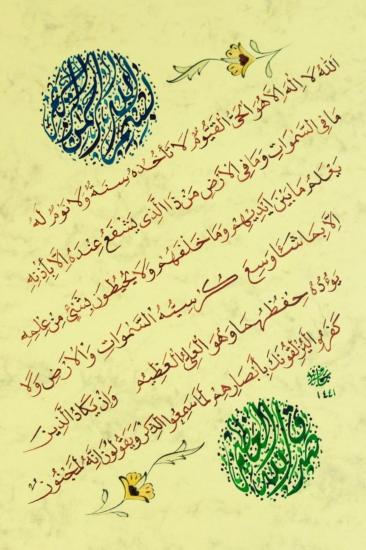 بسم الله الرحمن الرحيم
اَللهُ لَا اِلٰهَ اِلَّا هُوَ الْحَيُّ الْقَيُّومُ لَا تَأْخُذُهُ سِنَةٌ وَلَا نَوْمٌ لَهُ
مَا فِي السَّمٰوَاتِ وَمَا فِي الْاَرْضِ مَنْ ذَا الَّذِي يَشْفَعُ عِنْدَهُ اِلَّا بِاِذْنِهِ
يَعْلَمُ مَا بَيْنَ اَيْدِيهِمْ وَمَا خَلْفَهُمْ وَلَا يُحِيطُونَ بِشَيْءٍ مِنْ عِلْمِهِ
اِلَّا بِمَا شَاءَ وَسِعَ كُرْسِيُّهُ السَّمٰوَاتِ وَالْاَرْضَ وَلَا
يَؤُدُهُ حِفْظُهُمَا وَهُوَ الْعَلِيُّ الْعَظِيمُ وَاِنْ يَكَادُ الَّذِينَ
كَفَرُوا لَيُزْلِقُونَكَ بِاَبْصَارِهِمْ لَمَّا سَمِعُوا الذِّكْرَ وَيَقُولُونَ اِنَّهُ لَمَجْنُونٌ
١٤٤١
صدق الله العلي العظيم